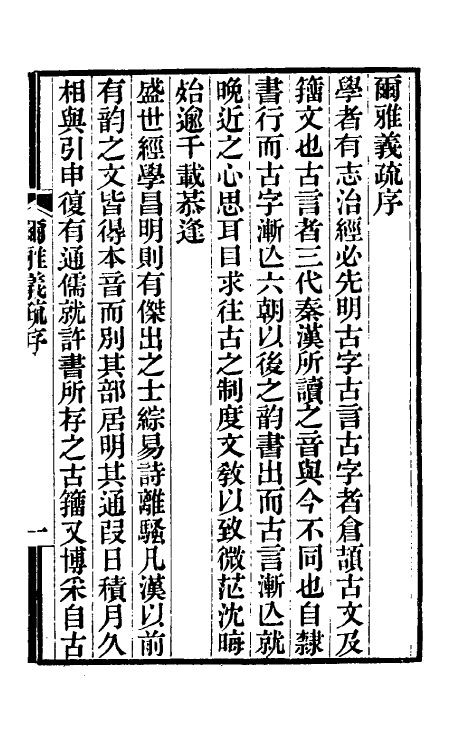 爾雅義疏序
學者有志治經必先明古字古言古字者倉頡古文及
籒文也古言者三代秦漢所讀之音與今不同也自隸
書行而古字漸亾六朝以後之韵書出而古言漸亾就
晚近之心思耳目求往古之制度文敎以致微茫沈晦
始逾千載恭逢
盛世經學昌明則有傑出之士綜易詩離騷凡漢以前
有韵之文皆得本音而別其部居明其通叚日積月久
相與引申復有通儒就許書所存之古籒又博采自古
爾雅義疏序
一